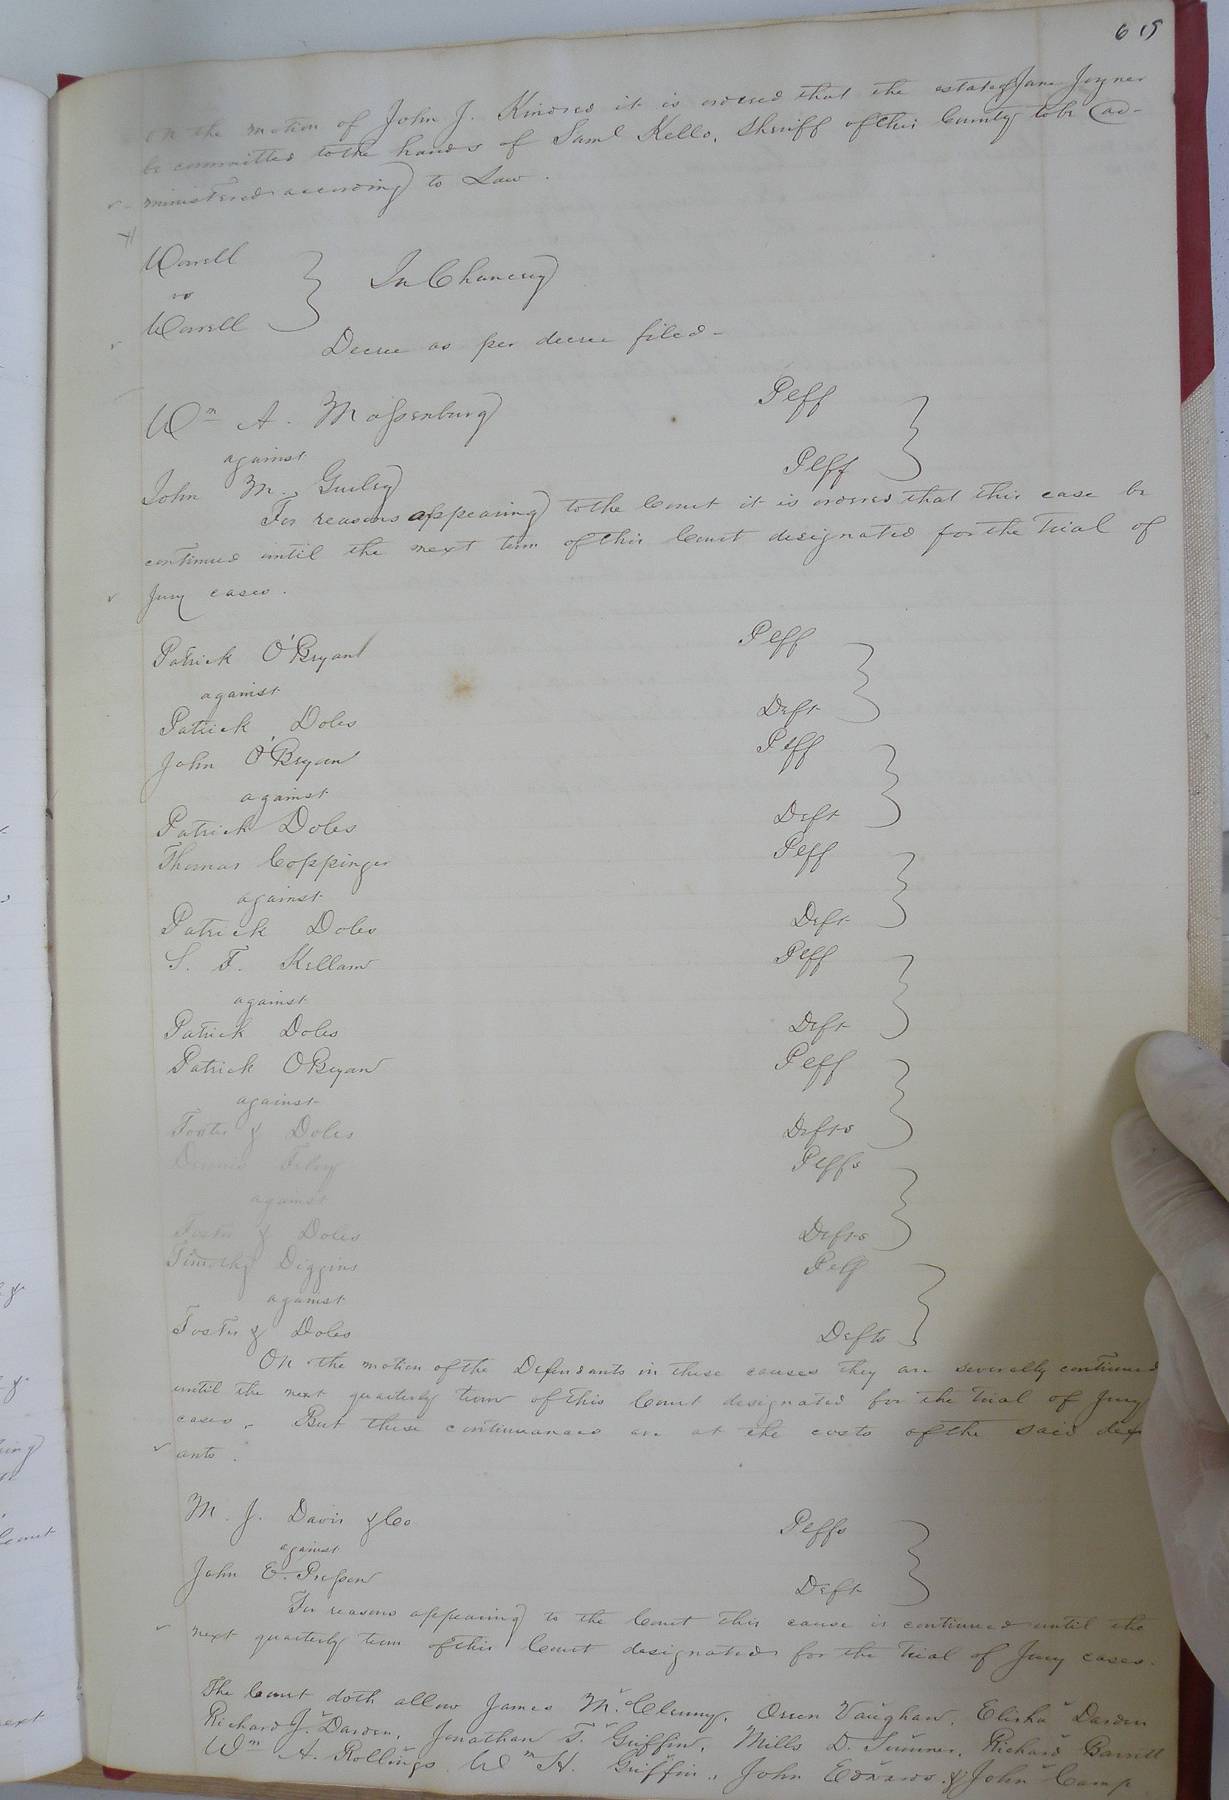 615
On the motion of John J. Kindred it is ordered that the estate of Jane Joyner
be committed to the hands of Saml Kello, Sheriff of this County to be ad-
ministered according to Law.
Worrell
vs
Worrell
In Chancery
Decree as per decree filed-
Wm A. Massenburg Plff
against
John M. Gurley Plff
For reasons appearing to the Court it is ordered that this case be
continued until the next term of this Court designated for the trial of
Jury cases.
Patrick O'Bryan Plff
against
Patrick Doles Deft
John O'Bryan Plff
against
Patrick Doles Deft
Thomas Coppinger Plff
against
Patrick Doles Deft
S. F. Kellam Plff
against
Patrick Doles Deft
Patrick OBryan Plff
against
Foster & Doles Defts
Dennis Plffs
against
Foster & Doles Defts
Timothy Diggins Plff
against
Foster & Doles Defts
On the motion of the Defendants in these causes they are severally continued
until the next quarterly term of this Court designated for the trial of Jury
cases. But these continuances are at the costs of the said def
ants.
M. J. Davis & Co Plffs
against
John E. Presson Deft
For reasons appearing to the Court this cause is continued until the
next quarterly term of this Court designated for the trial of Jury cases.
The Court doth allow James McClenny, Orren Vaughan, Elisha Darden
Richard J. Darden, Jonathan T. Griffin, Mills D. Sumner, Richard Barrett
Wm A. Rollings, Wm H. Griffin, John Edwards & John Camp